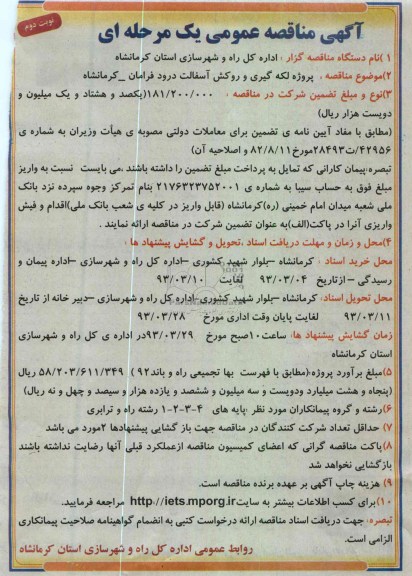 نوبت دوم
آگهی مناقصه عمومی یک مرحله ای
۱)نام دستگاه مناقصه گزار : اداره کل راه و شهرسازی استان کرمانشاه
۲)موضوع مناقصه : پروژه لکه گیری و روکش آسفالت درود فرامان _کرمانشاه
۳)نوع و مبلغ تضمین شرکت در مناقصه : ۱۸۱/۲۰۰/۰۰۰(یکصد و هشتاد و یک میلیون و
دویست هزار ریال)
(مطابق با مفاد آیین نامه ی تضمین برای معاملات دولتی مصوبه ی هیأت وزیران به شماره ی
۴۲۹۵۶/ت۲۸۴۹۳مورخ۸۲/۸/۱۱ و اصلاحیه آن)
تبصره:پیمان کارانی که تمایل به پرداخت مبلغ تضمین را داشته باشند ،می بایست نسبت به واریز
مبلغ فوق به حساب سیبا به شماره ی ۲۱۷۶۳۲۳۷۵۲۰۰۱ بنام تمرکز وجوه سپرده نزد بانک
ملی شعبه میدان امام خمینی (ره)کرمانشاه (قابل واریز در کلیه ی شعب بانک ملی)اقدام و فیش
واریزی آنرا در پاکت(الف)به عنوان تضمین شرکت در مناقصه ارائه نمایند .
۴)محل و زمان و مهلت دریافت اسناد ،تحویل و گشایش پیشنهاد ها :
محل خرید اسناد : کرمانشاه –بلوار شهید کشوری –اداره کل راه و شهرسازی –اداره پیمان و
رسیدگی – ازتاریخ ۹۳/۰۳/۰۴ لغایت ۹۳/۰۳/۱۰
محل تحویل اسناد: کرمانشاه –بلوار شهید کشوری –اداره کل راه و شهرسازی –دبیر خانه از تاریخ
۹۳/۰۳/۱۱ لغایت پایان وقت اداری مورخ ۹۳/۰۳/۲۸
زمان گشایش پیشنهاد ها: ساعت۱۰صبح مورخ ۹۳/۰۳/۲۹در اداره ی کل راه و شهرسازی
استان کرمانشاه
۵)مبلغ برآورد پروژه(مطابق با فهرست بها تجمیعی راه و باند۹۲ ) ۵۸/۲۰۳/۶۱۱/۳۴۹ ریال
(پنجاه و هشت میلیارد ودویست و سه میلیون و ششصد و یازده هزار و سیصد و چهل و نه ریال)
۶)رشته و گروه پیمانکاران مورد نظر :پایه های ۴-۳-۲-۱ رشته راه و ترابری
۷) حداقل تعداد شرکت کنندگان در مناقصه جهت باز گشایی پیشنهادها ۲مورد می باشد
۸)پاکت مناقصه گرانی که اعضای کمیسیون مناقصه ازعملکرد قبلی آنها رضایت نداشته باشند
بازگشایی نخواهد شد
۹) هزینه چاپ آگهی بر عهده برنده مناقصه است.
۱۰)برای کسب اطلاعات بیشتر به سایت http://iets.mporg.ir مراجعه فرمایید.
تبصره: جهت دریافت اسناد مناقصه ارائه درخواست کتبی به انضمام گواهینامه صلاحیت پیمانکاری
الزامی است.
روابط عمومی اداره کل راه و شهرسازی استان کرمانشاه